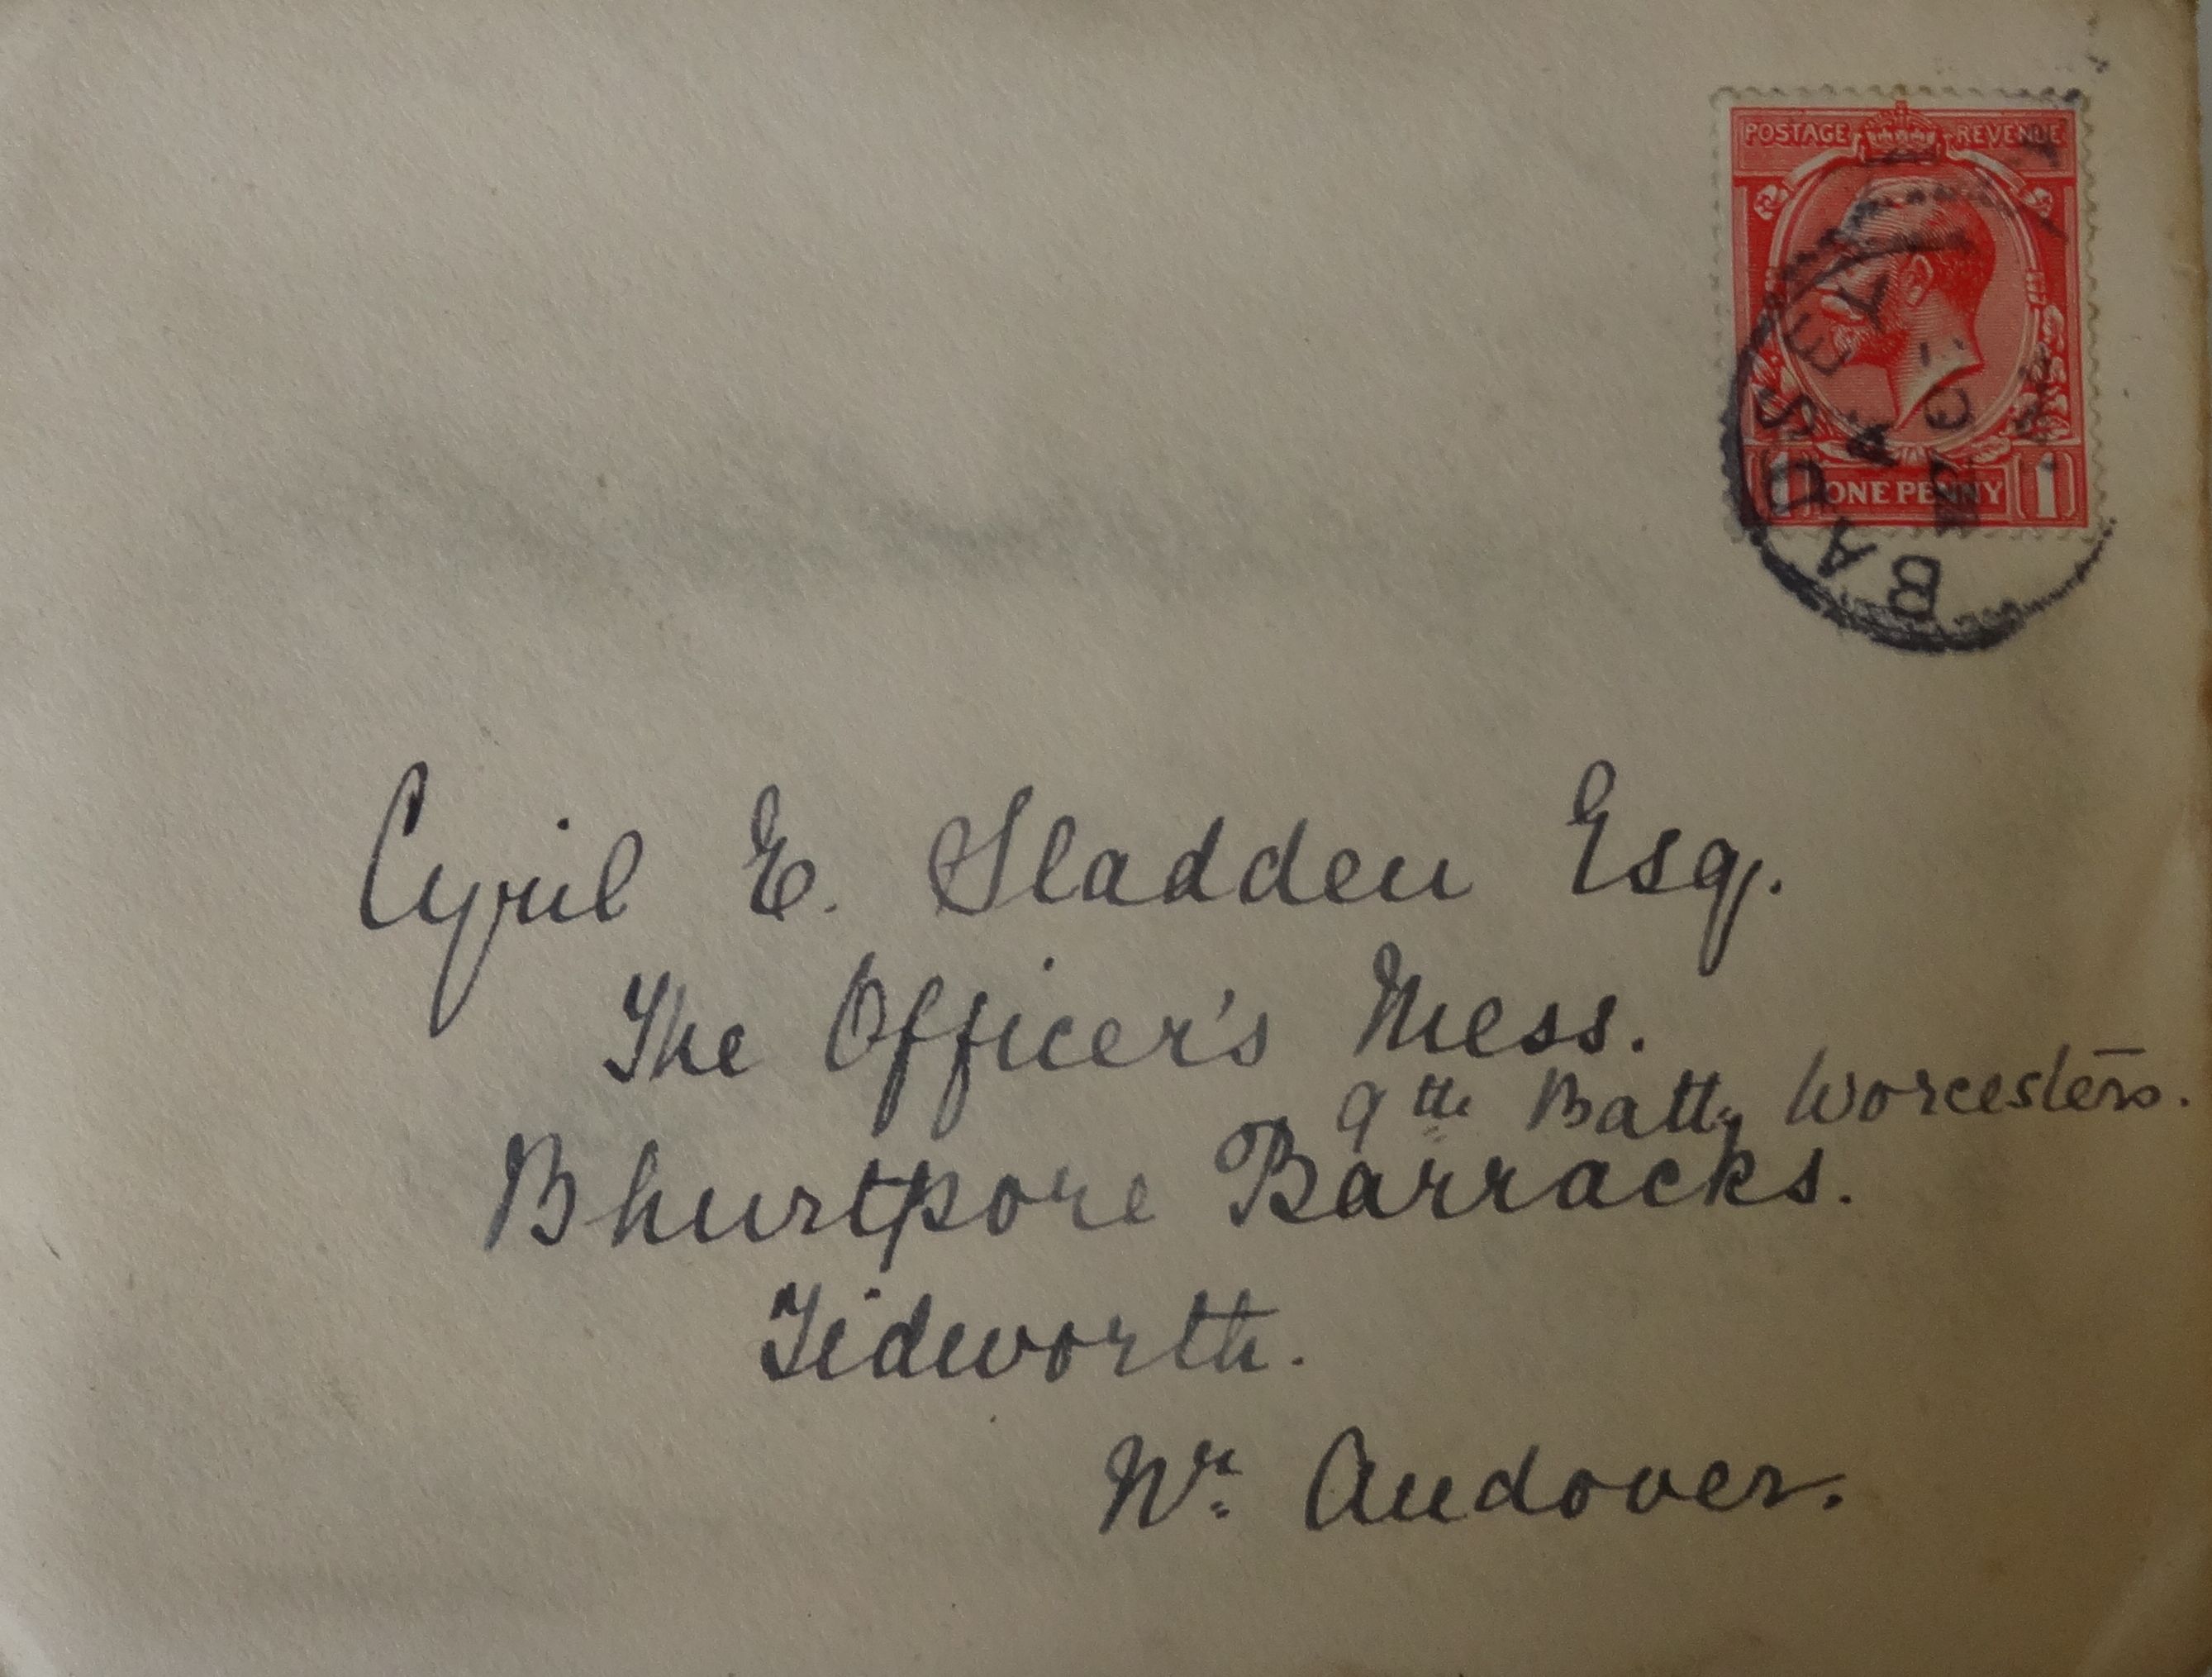 POSTAGE REVENUE
ONE PENNY
1 1
BADSEY
Cyril E. Sladden Esq.
The Officer's Mess.
9th Batt. Worcesters.
Bhurtpore Barracks.
Tidworth.
Nr. Andover.